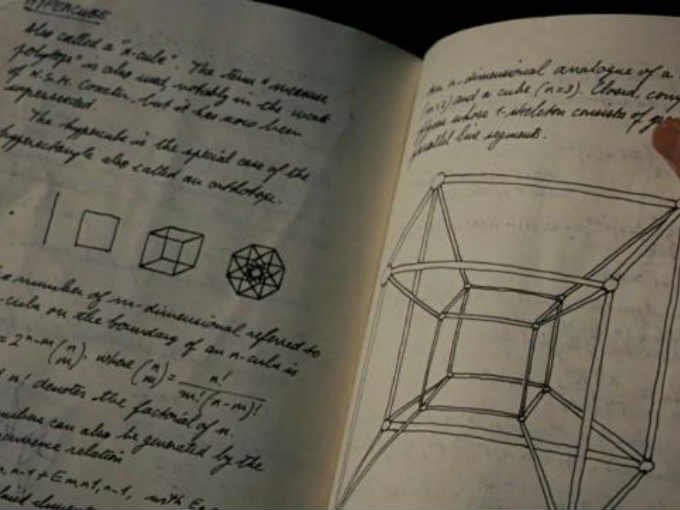 HYPERCUBE
Also called a "n-cube". The term "measure
polytope" is also used, notably in the work
of H.S.M. Coxeter, but it has now been
superseded.
The hypercube is the special case of the
hyperrectangle also called an orthotope.
number of m-dimensional referred to
-cube on the boundary of an n-cube is
= 2ⁿ⁻ᵐ (n m), where (n m) = n! / m!(n-m)!
n! denotes the factorial of n.
can also be generated by the
relation
with
an n-dimensional analogue of a
(n=2) and a cube (n=3). Closed,
whose 1-skeleton consists of
parallel line segments.